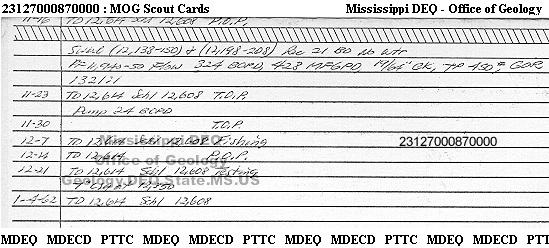 23127000870000 : MOG Scout Cards Mississippi DEQ - Office of Geology
11-16 TD 12,614 Schl 12,608 T.O.P.
(12,138-150) & (12,198-208) Rec 21 BO No Wtr
324 BOPD, 428 MFGPD, CK, TP 450# GOR
1321:1
11-23 TD 12,614 Schl 12,608 T.O.P.
Pump 24 BOPD
11-30 T.O.P.
12-7 TD 12,614 Schl 12,608 Fishing
Mississippi DEQ
23127000870000
12-14 TD 12,614 T.O.P.
Office of Geology
12-21 TD 12,614 Schl 12,608 Testing
Geology.DEQ.State.MS.US
1-4-62 TD 12,614 Schl 12,608
MDEQ MDECD PTTC MDEQ MDECD PTTC MDEQ MDECD PTTC MDEQ MDECD PTT